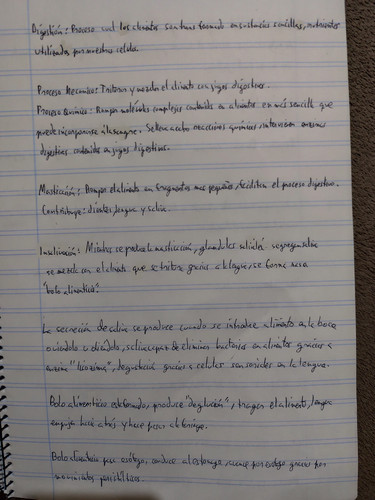 Digestión: Proceso cual los alimentos son transformado en sustancias sencillas, nutrientes
utilizados por nuestra celula.
Proceso Mecanico: Trituran y mezclan el alimento con jugos digestivos.
Proceso Químico: Rompen moléculas complejas contenidas en alimentos en más sencilla que
puede incorporarse a la sangre. Se lleva a cabo reacciones químicas, intervienen enzimas
digestivas contenidas en jugos digestivos.
Masticación: Rompe el alimento en fragmentos mas pequeños, facilitan el proceso digestivo.
Contribuye: dientes, lengua y saliva.
Insalivación: Mientras se produce la masticación, glandulas salivales segregan saliva
se mezcla con el alimento que se tritura gracias a la lengua, se forma masa
"bolo alimenticio".
La secreción de saliva se produce cuando se introduce alimento en la boca
o viendolo u oliendolo, saliva capaz de eliminar bacterias en alimentos gracias a
enzima "lisozima", degustación gracias a celulas sensoriales en la lengua.
Bolo alimenticio es formado, produce "deglución", tragar el alimento, lengua
empuja hacia atrás y hace pasar a la faringe.
Bolo alimenticio pasa esófago, conduce al estomago, avanza por esofago gracias por
movimientos peristálticos.